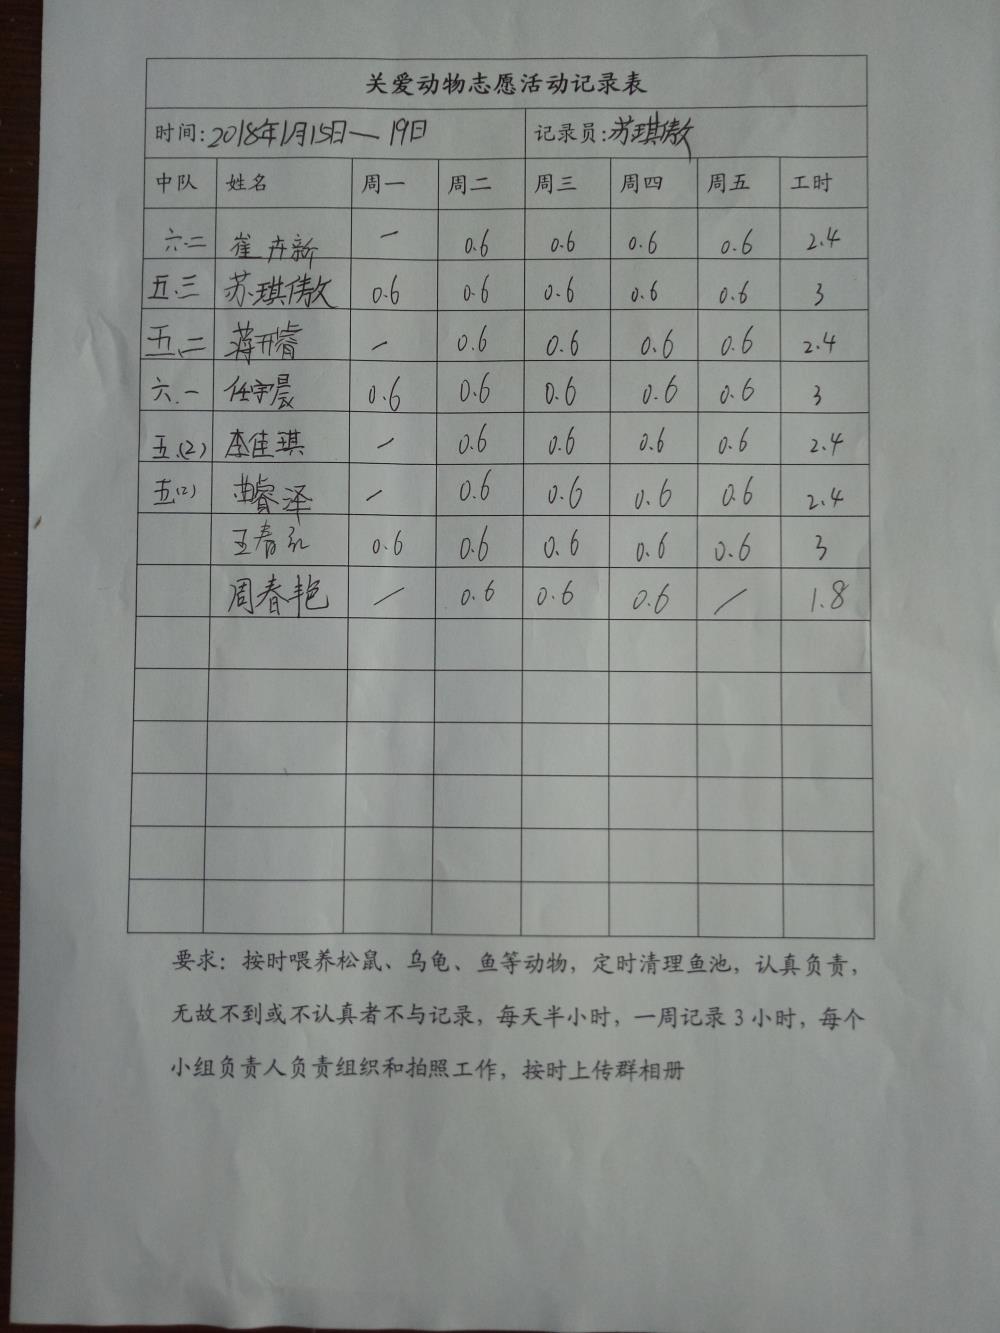 关爱动物志愿活动记录表
时间：2018年1月15日—19日 记录员：苏琪傲
中队 姓名 周一 周二 周三 周四 周五 工时
六.二 崔卉新 — 0.6 0.6 0.6 0.6 2.4
五.三 苏琪傲 0.6 0.6 0.6 0.6 0.6 3
五.二 蒋开睿 — 0.6 0.6 0.6 0.6 2.4
六.一 任宇晨 0.6 0.6 0.6 0.6 0.6 3
五.(2) 李佳琪 — 0.6 0.6 0.6 0.6 2.4
五(2) 曲睿泽 / 0.6 0.6 0.6 0.6 2.4
王春 0.6 0.6 0.6 0.6 0.6 3
周春艳 / 0.6 0.6 0.6 / 1.8
要求：按时喂养松鼠、乌龟、鱼等动物，定时清理鱼池，认真负责，
无故不到或不认真者不与记录，每天半小时，一周记录 3 小时，每个
小组负责人负责组织和拍照工作，按时上传群相册